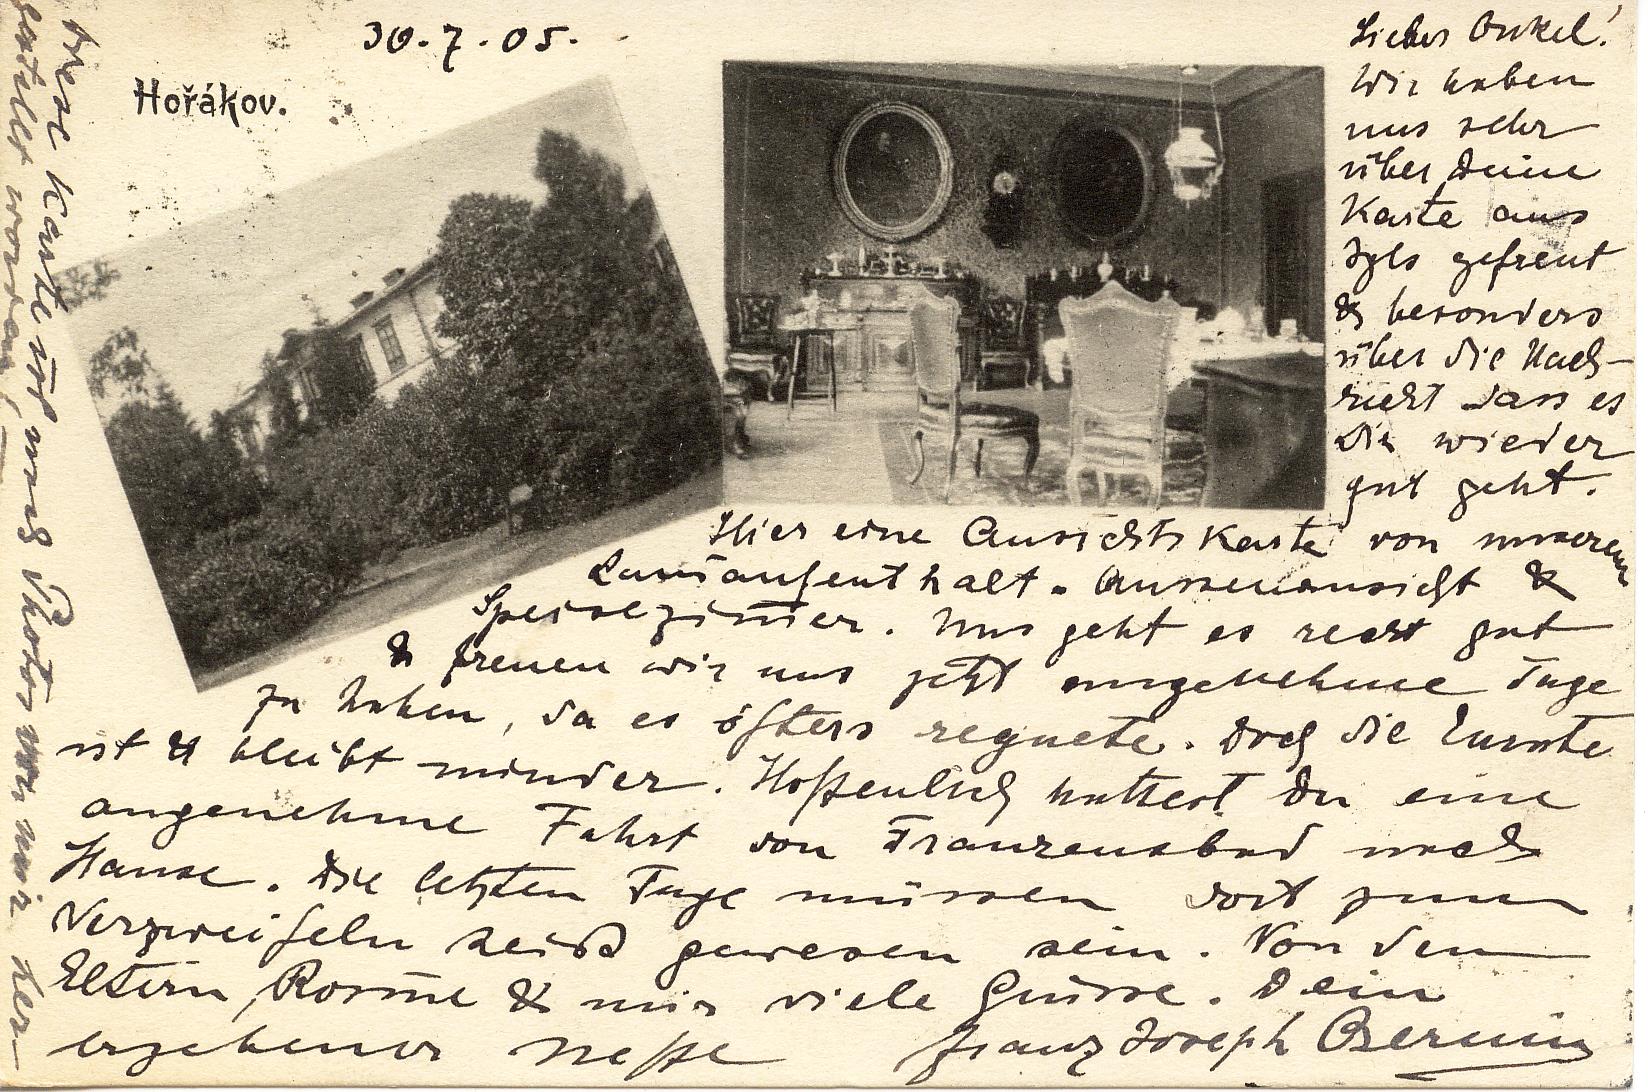 30.7.05.
Hořákov.
Lieber Onkel!
Wir haben
uns sehr
über Deine
Karte aus
Igls gefreut
& besonders
über die Nach-
richt dass es
Dir wieder
gut geht.
Hier eine Ansichtskarte von unserem
Landaufenthalt. Aussenansicht &
Speisezim̄er. Uns geht es recht gut
& freuen wir uns jetzt angenehme Tage
zu haben, da es öfters regnete. Doch die Ernte
ist & bleibt minder. Hoffentlich hattest Du eine
angenehme Fahrt von Franzensbad nach
Hause. Die letzten Tage müssen dort zum
Verzweifeln heiß gewesen sein. Von den
Eltern, & mir viele Grüsse. Dein
ergebener Neffe Franz Joseph
Diese Karte ist nach Photos von mir her-
gestellt worden!